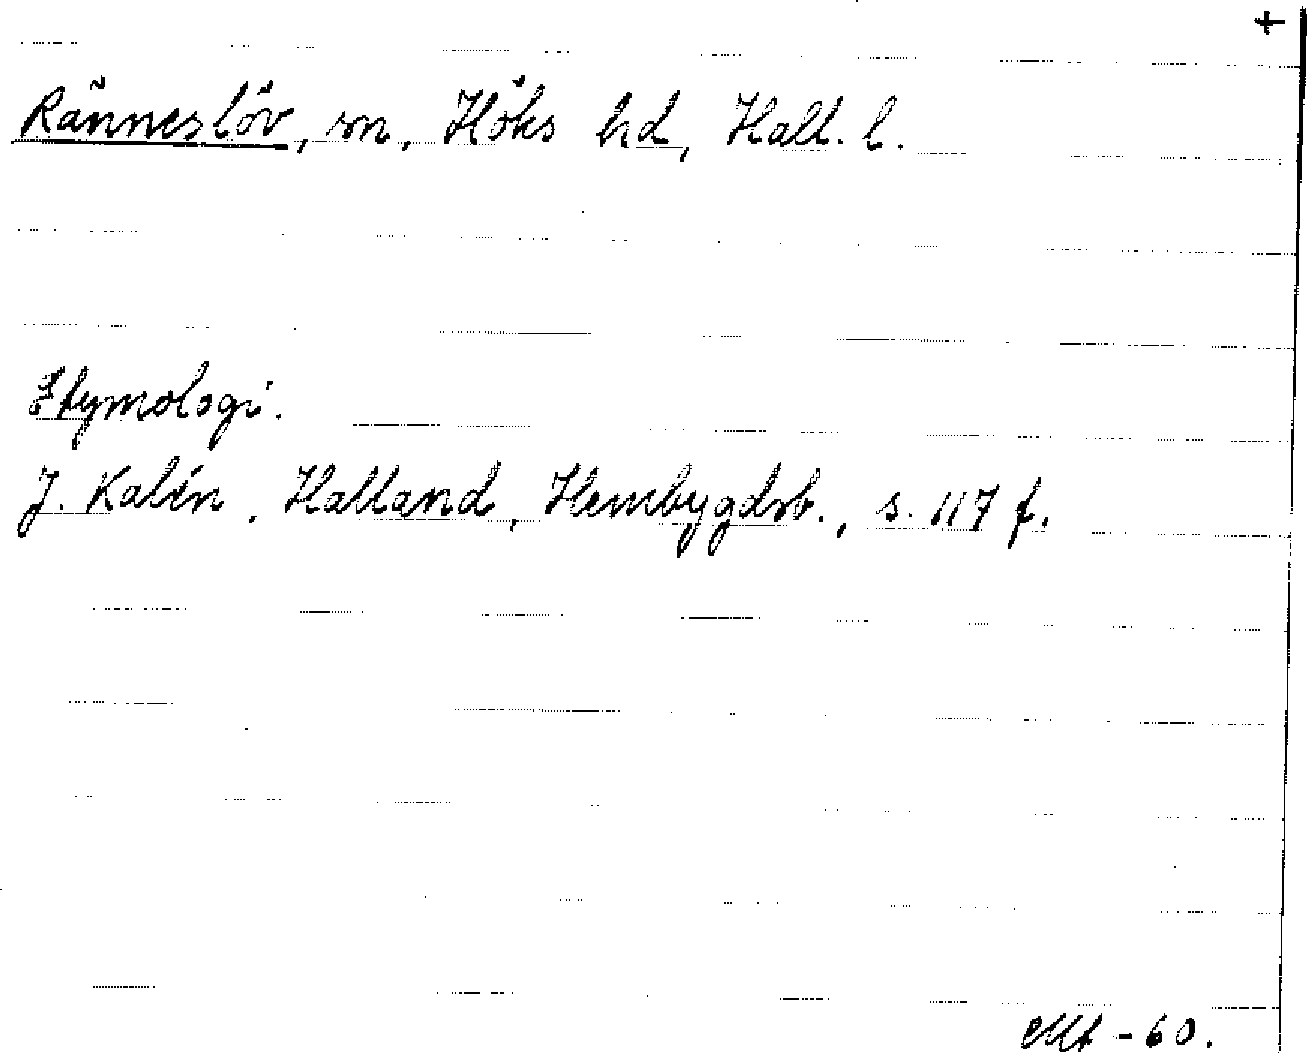 +
Ränneslöv, sn, Höks hd, Hall. l.
Etymologi.
J. Kalén, Halland, Hembygdsb., s. 117 f.
Mt -60.